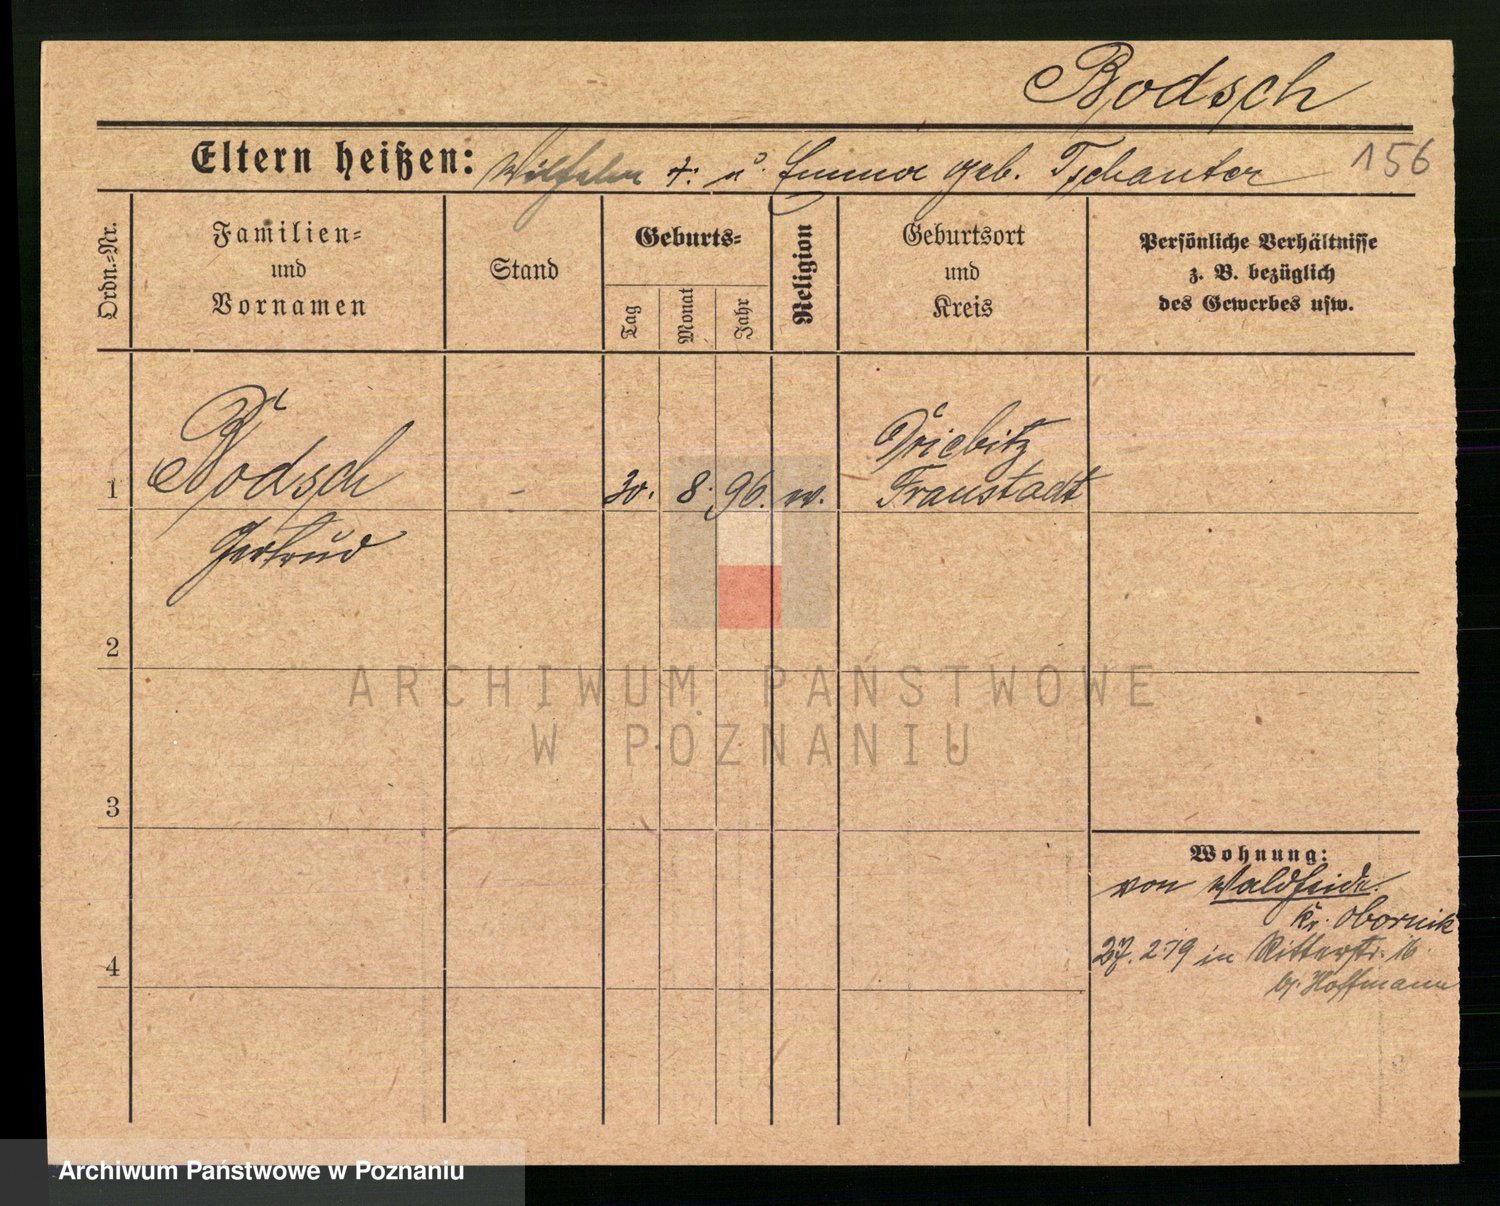 Bodsch
156
Eltern heißen: Wilhelm †. u. Emma geb. Tschanter
Ordn.-Nr.
Familien-
und
Vornamen
Stand
Geburts-
Tag
Monat
Jahr
Religion
Geburtsort
und
Kreis
Persönliche Verhältnisse
z. B. bezüglich
des Gewerbes usw.
1 Bodsch - 30. 8. 96.
Gertrud
Driebitz
Fraustadt
2
3
4
Wohnung:
von Waldheide.
Kr. Obornik
in Ritterstr. 16
b/. Hoffmann
ARCHIWUM PAŃSTWOWE
W POZNANIU
Archiwum Państwowe w Poznaniu